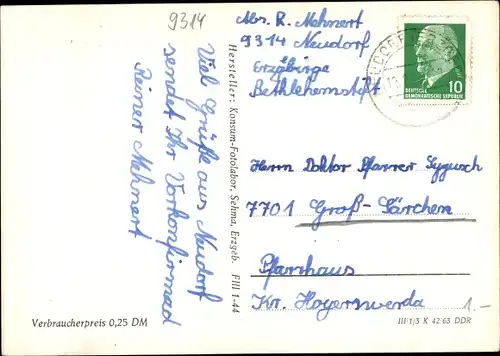 9314
Viel Grüße aus Neudorf
sendet Ihr Vorkonfirmand
Reiner Mehnert
Hersteller: Konsum-Fotolabor, Sehma, Erzgeb. FIII 1-44
Abs. R. Mehnert
9314 Neudorf
Erzgebirge
Bethlehemstift
DEUTSCHE
DEMOKRATISCHE REPUBLIK
10
Herrn Doktor Pfarrer
7701 Groß-Särchen
Pfarrhaus
Kr. Hoyerswerda
1.-
Verbraucherpreis 0,25 DM
III/1/3 K 42/63 DDR